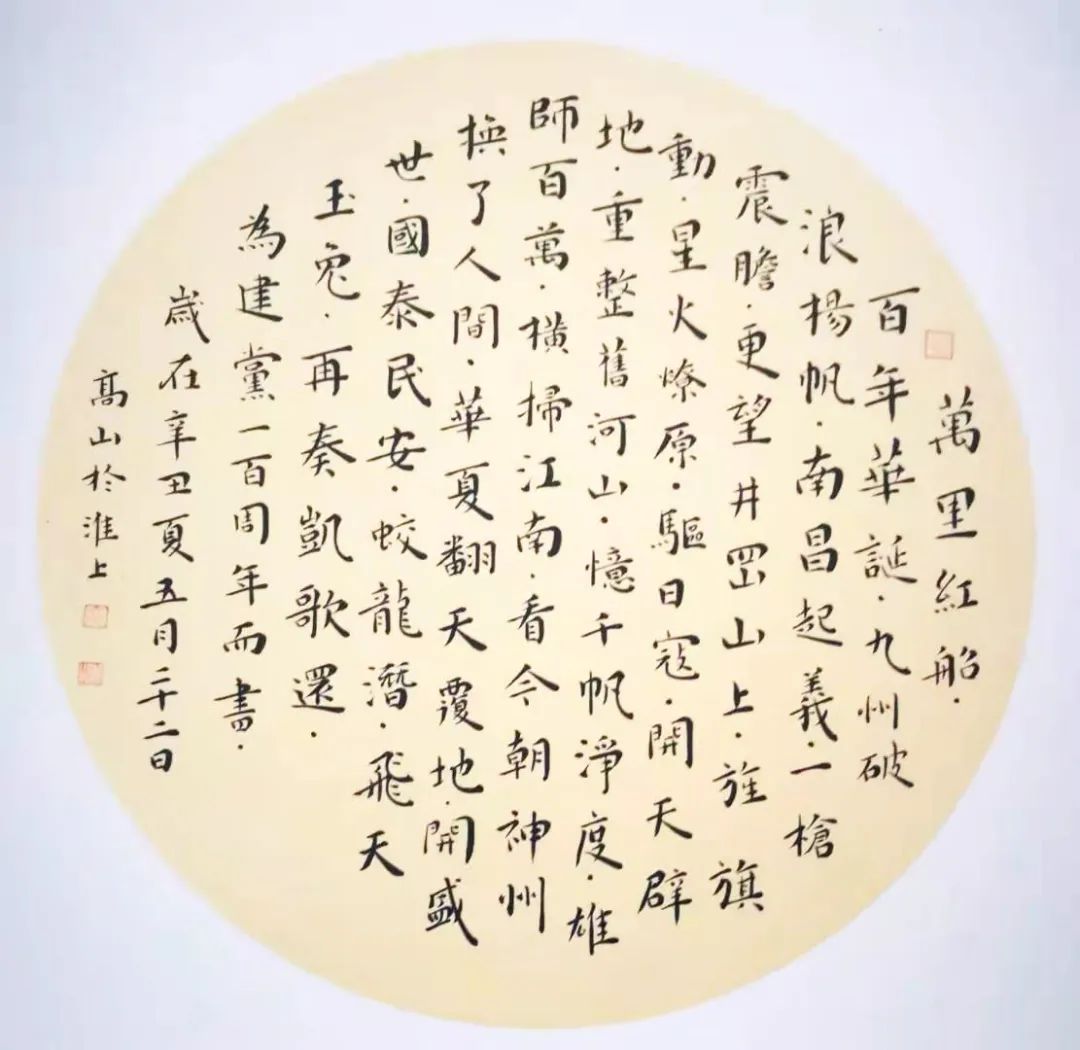 萬里紅船·
百年華誕·九州破
浪揚帆·南昌起義·一槍
震膽·更望井罡山上·旌旗
動·星火燎原·驅日寇·開天辟
地·重整舊河山·憶千帆淨度·雄
師百萬·橫掃江南·看今朝神州
換了人間·華夏翻天覆地·開盛
世·國泰民安·蛟龍潛·飛天
玉兔·再奏凱歌還·
為建黨一百周年而書·
歲在辛丑夏五月二十二日
高山於淮上